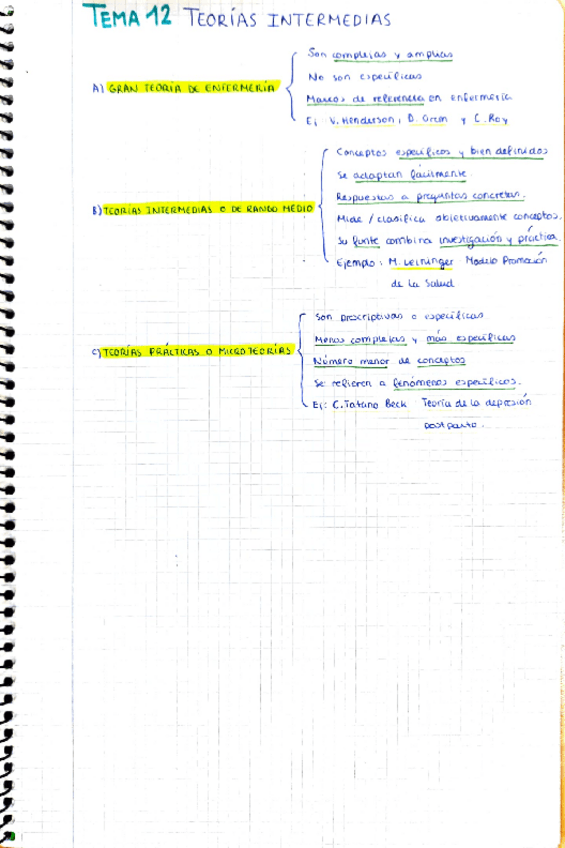 TEMA 12 TEORÍAS INTERMEDIAS
Son complejas y amplias
No son específicas
A) GRAN TEORÍA DE ENFERMERÍA
Marcos de referencia en enfermería
Ej V. Henderson, D. Orem y C. Roy
Conceptos específicos y bien definidos
Se adaptan fácilmente
Respuestas a preguntas concretas.
B) TEORÍAS INTERMEDIAS O DE RANGO MEDIO
Mide / clasifica objetivamente conceptos.
Su fuente combina investigación y práctica.
Ejemplo: M. Leininger Modelo Promoción
de la Salud
Son prescriptivas o específicas
Menos complejas y más específicas
C) TEORÍAS PRÁCTICAS O MICROTEORÍAS
Número menor de conceptos
Se refieren a fenómenos específicos.
Ej: C. Tatano Beck Teoría de la depresión
postparto.